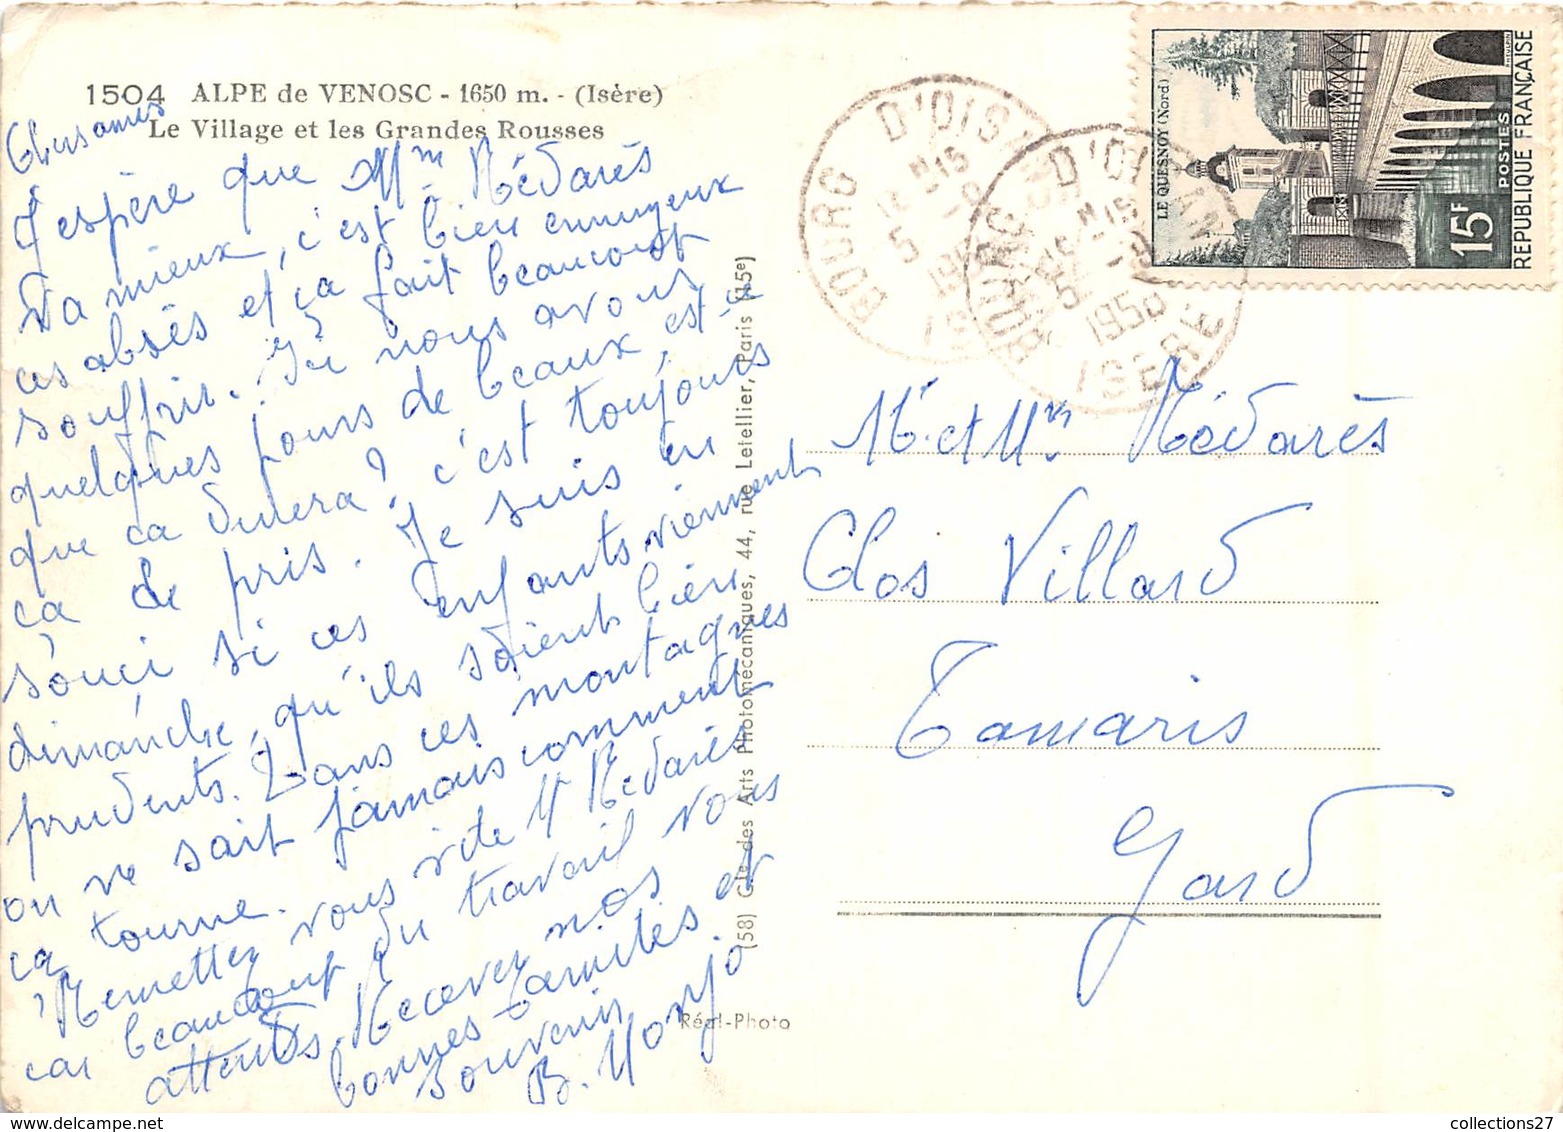 1504 ALPE de VENOSC - 1650 m. - (Isère)
Le Village et les Grandes Rousses
Chers amis
J'espère que Mme Médarès
va mieux, c'est bien ennuyeux
ces absès et ça fait beaucoup
souffrir. Ici nous avons
quelques jours de beaux, est-ce
que ça durera? c'est toujours
ça de pris. Je suis en
souci si ces enfants viennent
dimanche, qu'ils soient bien
prudents. Dans ces montagnes
on ne sait jamais comment
ça tourne.
Remettez vous vite M Médarès
car beaucoup du travail vous
attends. Recevez nos
bonnes amitiés et
souvenir
B. Monjo
(58) Cie des Arts Photomecaniques, 44, rue Letellier, Paris (15e)
Réal-Photo
BOURG D'OISANS
ISERE
12 H 15
5 - 9
1958
BOURG D'OISANS
ISERE
12 H 15
5 - 9
1958
LE QUESNOY (Nord)
15F
POSTES
REPUBLIQUE FRANÇAISE
Mr et Mme Médarès
Clos Villard
Tamaris
Gard
collections27